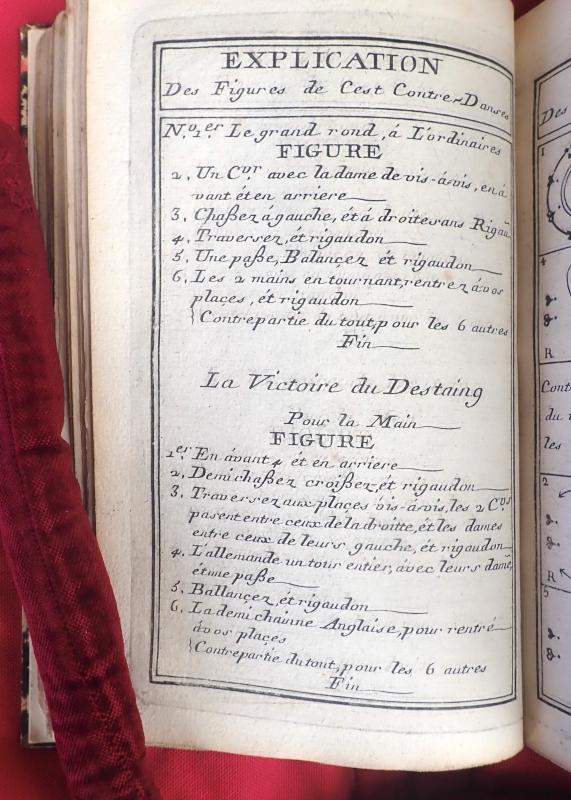 EXPLICATION
Des Figures de Cest Contre-Danses
N.o 1.er Le grand rond, á L'ordinaires
FIGURE
2, Un C.vr avec la dame de vis-á-vis, en á
vant ét en arriere
3, Chaßez á gauche, ét á droite sans Rigau
4, Traversez, ét rigaudon
5, Une paße, Balançez ét rigaudon
6, Les 2 mains en tournant, rentrez á vos
plaçes, ét rigaudon
Contrepartie du tout, pour les 6 autres
Fin
La Victoire du Destaing
Pour la Main
FIGURE
1er En ávant 4 ét en arriere
2, Demi chaßez croißez, ét rigaudon
3, Traversez aux plaçes vis-á-vis, les 2 C.vrs
pasent entre ceux de la droitte, ét les dames
entre ceux de leurs gauche, ét rigaudon
4, L'allemande un tour entier, avec leurs dame,
ét une paße
5, Ballançez, ét rigaudon
6, La demi chainne Anglaise, pour rentré
á vos plaçes
Contrepartie du tout, pour les 6 autres
Fin
Des
1
4
R
Cont
du
les
2
R
5